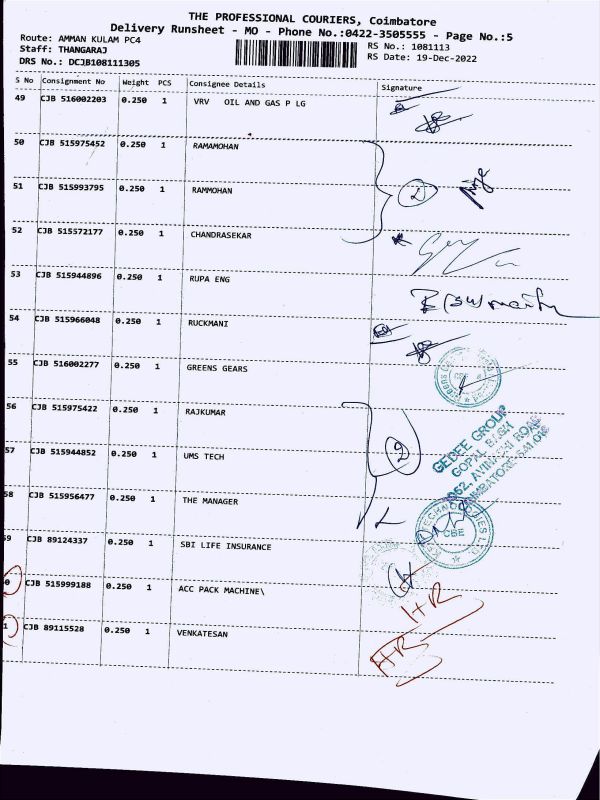 THE PROFESSIONAL COURIERS, Coimbatore
Delivery Runsheet - MO - Phone No.:0422-3505555 - Page No.:5
Route: AMMAN KULAM PC4
RS No.: 1081113
Staff: THANGARAJ
RS Date: 19-Dec-2022
DRS No.: DCJB108111305
S No Consignment No Weight PCS Consignee Details Signature
49 CJB 516002203 0.250 1 VRV OIL AND GAS P LG
50 CJB 515975452 0.250 1 RAMAMOHAN
51 CJB 515993795 0.250 1 RAMMOHAN
2
52 CJB 515572177 0.250 1 CHANDRASEKAR
53 CJB 515944896 0.250 1 RUPA ENG
54 CJB 515966048 0.250 1 RUCKMANI
55 CJB 516002277 0.250 1 GREENS GEARS
CBE
56 CJB 515975422 0.250 1 RAJKUMAR
GEDEE GROUP
GOPAL BAGH
AVINASHI ROAD
COIMBATORE
57 CJB 515944852 0.250 1 UMS TECH
2
58 CJB 515956477 0.250 1 THE MANAGER
CBE
59 CJB 89124337 0.250 1 SBI LIFE INSURANCE
0 CJB 515999188 0.250 1 ACC PACK MACHINE\
HR
1 CJB 89115528 0.250 1 VENKATESAN